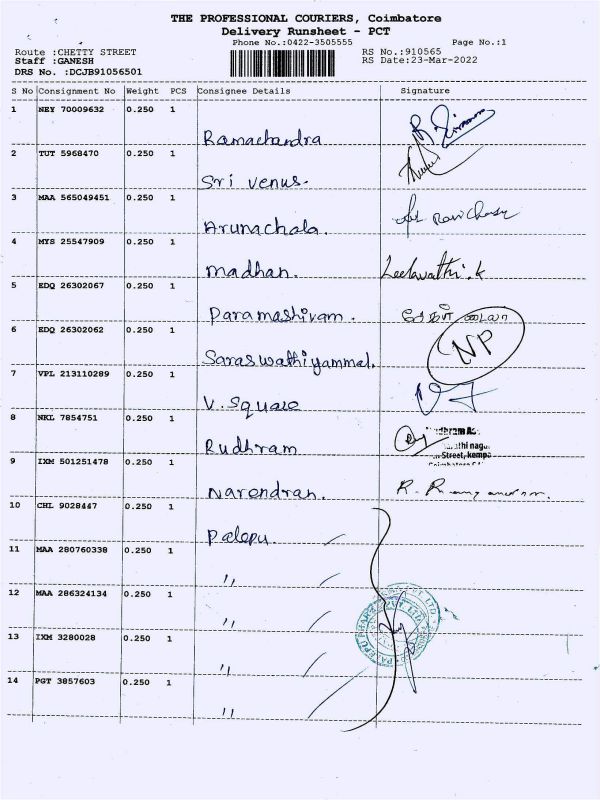 THE PROFESSIONAL COURIERS, Coimbatore
Delivery Runsheet - PCT
Phone No.:0422-3505555 Page No.:1
Route :CHETTY STREET RS No.:910565
Staff :GANESH RS Date:23-Mar-2022
DRS No. :DCJB91056501
S No Consignment No Weight PCS Consignee Details Signature
1 NEY 70009632 0.250 1
Ramachandra
2 TUT 5968470 0.250 1
Sri venus.
3 MAA 565049451 0.250 1
Arunachala.
4 MYS 25547909 0.250 1
madhan. Leelavathi.k
5 EDQ 26302067 0.250 1
Paramashivam.
6 EDQ 26302062 0.250 1
Saraswathiyammal. NP
7 VPL 213110289 0.250 1
V. Square
8 NKL 7854751 0.250 1
Rudhram
Street, kempa
9 IXM 501251478 0.250 1
Narendran.
10 CHL 9028447 0.250 1
Palepu
11 MAA 280760338 0.250 1
"
12 MAA 286324134 0.250 1
"
13 IXM 3280028 0.250 1
"
14 PGT 3857603 0.250 1
"